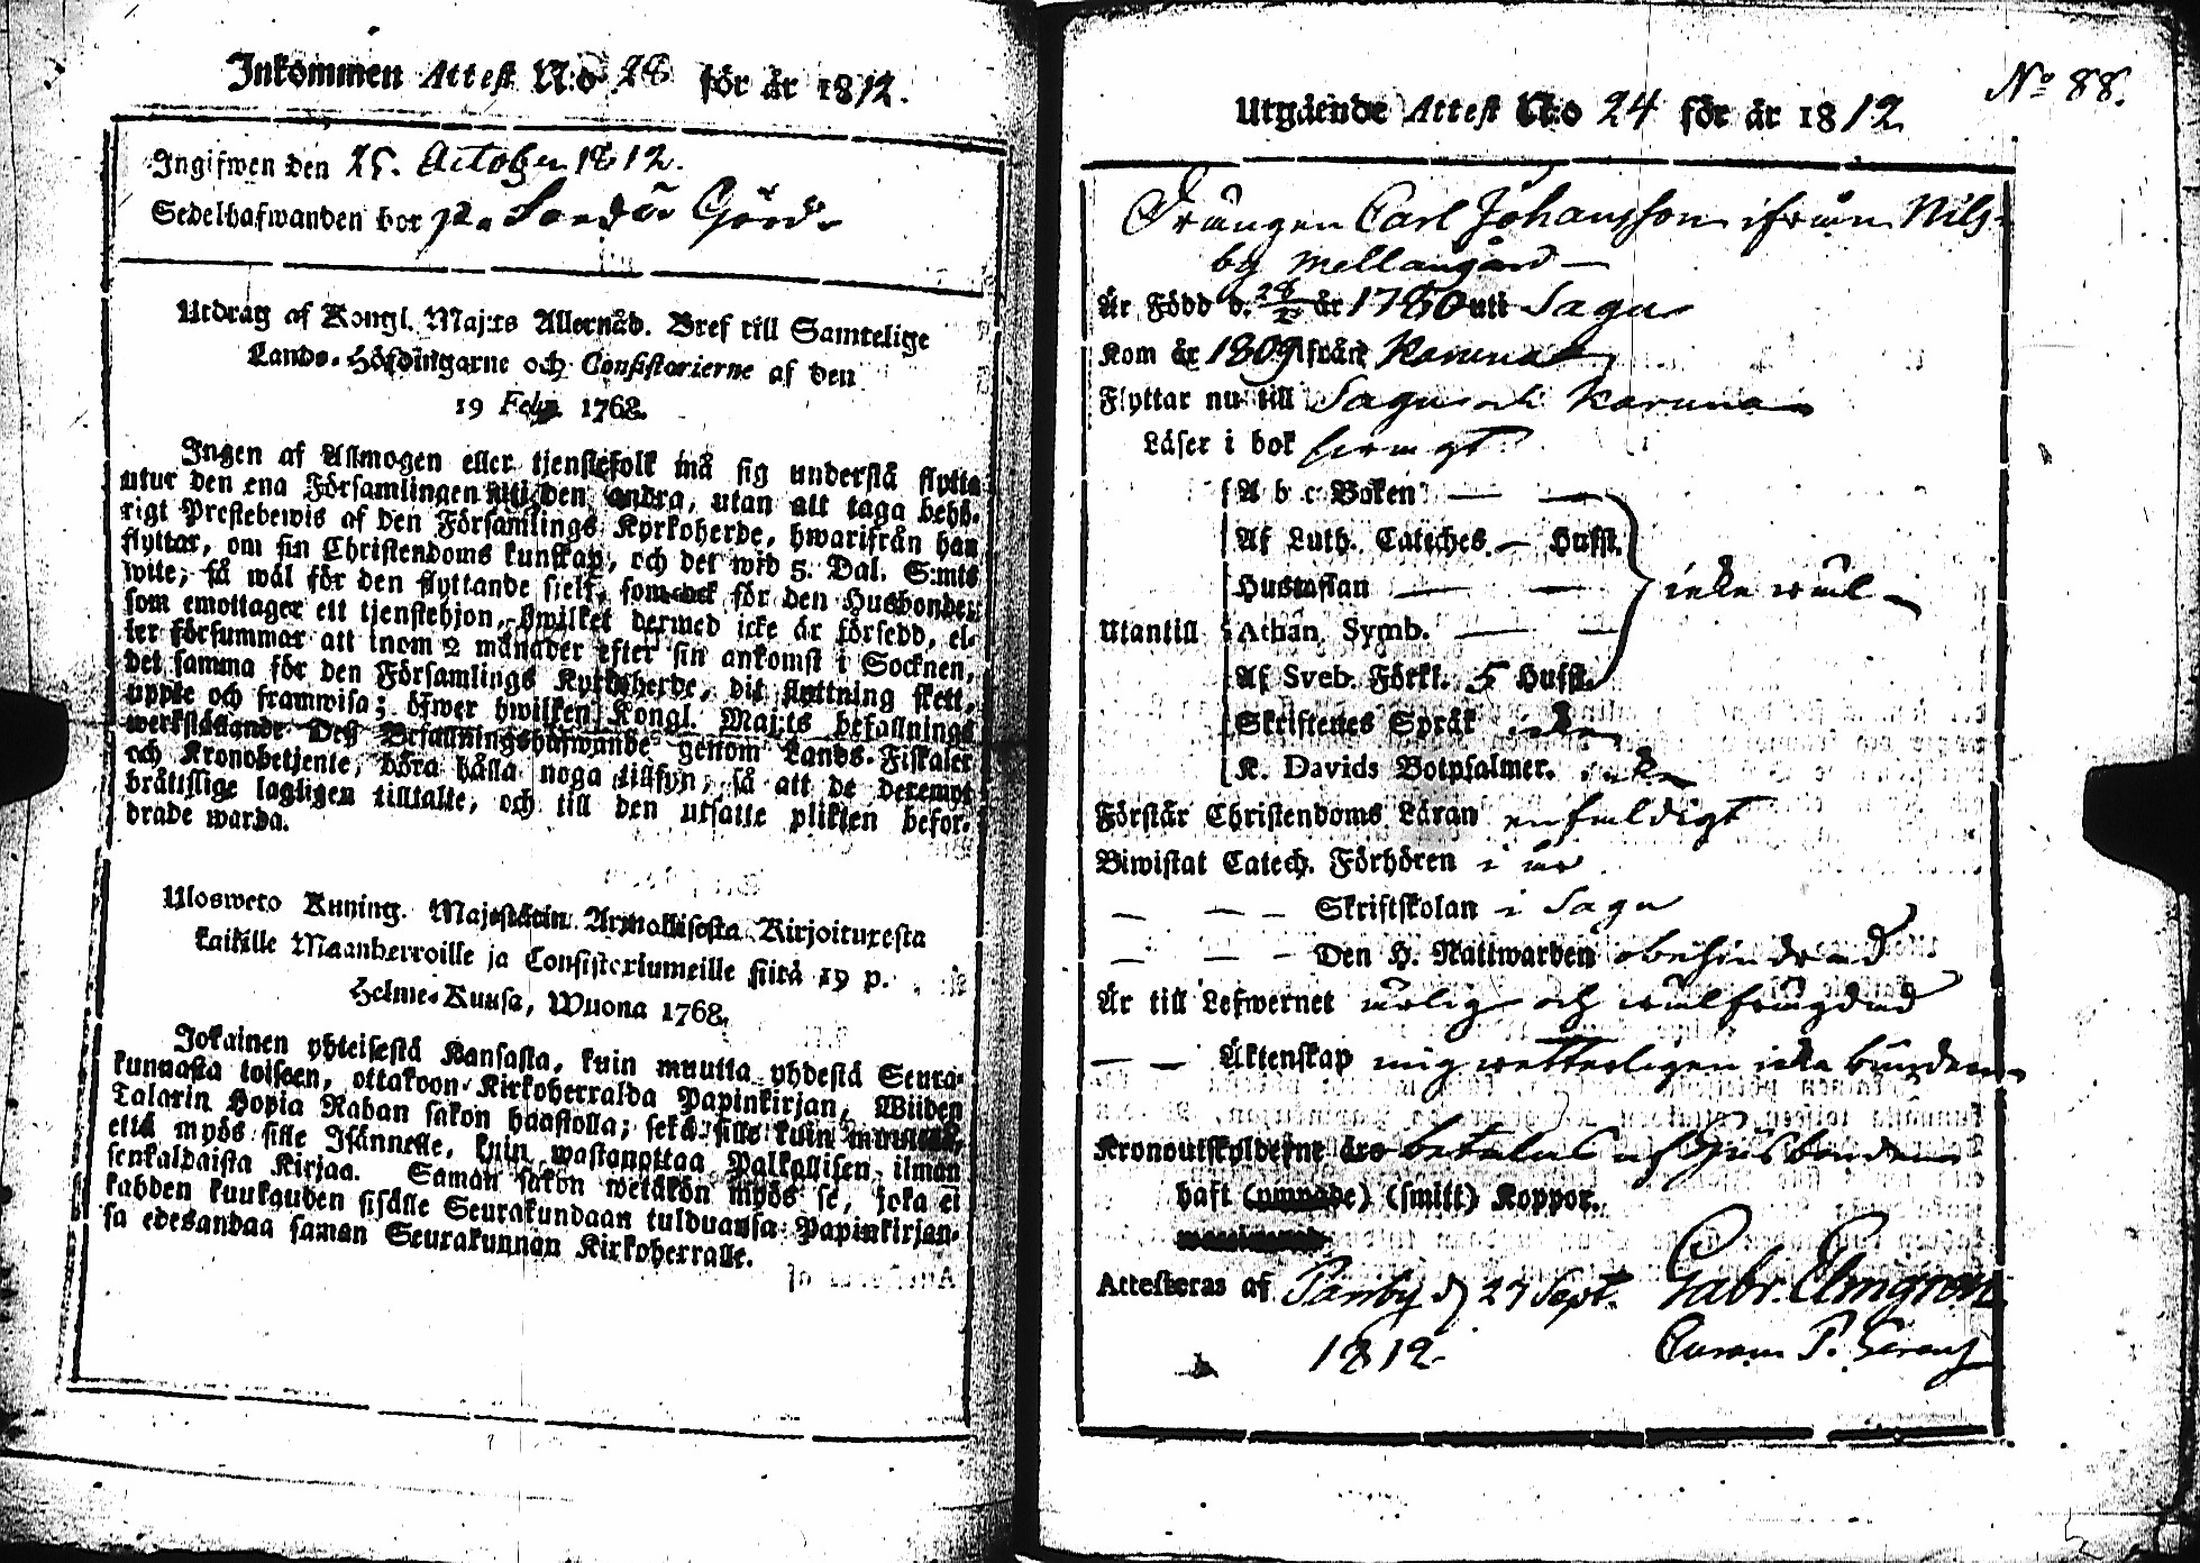 Inkommen Attest N:o 28 för år 1812.
Ingifwen den 25. October 1812.
Sedelhafwanden bor på Sandö Gård.
Utdrag af Kongl. Maj:ts Allernåd. Bref till Samtelige
Lands-Höfdingarne och Consistorierne af den
19 Febr. 1768.
Ingen af Allmogen eller tjenstefolk må sig understå flytta
utur den ena Församlingen uti den andra, utan att taga behö-
rigt Prestebewis af den Församlings Kyrkoherde, hwarifrån han
flyttar, om sin Christendoms kunskap, och det wid 5. Dal. S:mts
wite, så wäl för den flyttande sielf, som ock för den Husbonde,
som emottager ett tjenstehjon, hwilket dermed icke är försedd, el-
ler försummar att inom 2 månader efter sin ankomst i Socknen,
det samma för den Församlings Kyrkoherde, dit flyttning skett,
uppte och framwisa; öfwer hwilken Kongl. Maj:ts befallnings
werkställande Dess Befallningshafwande genom Lands-Fiskaler
och Kronobetjente, böra hålla noga tillsyn, så att de deremot
bråttslige lagligen tilltalte, och till den utsatte plikten befor-
drade warda.
Ulosweto Kuning. Majestätin Armollisesta Kirjoituxesta
kaikille Maanherroille ja Consistoriumeille siitä 19 p.
Helme-Kuusa, Wuona 1768.
Jokainen yhteisestä Kansasta, kuin muutta yhdestä Seura-
kunnasta toiseen, ottakoon Kirkoherralda Papinkirjan, Wiiden
Talarin Hopia Rahan sakon haastolla; sekä sille kuin muuttaa,
että myös sille Isännelle, kuin wastanottaa Palkollisen ilman
senkaldaista Kirjaa. Saman sakon wetäkön myös se, joka ei
kahden kuukauden sisälle Seurakundaan tulduansa Papinkirjan-
sa edesandaa saman Seurakunnan Kirkoherralle.
No 88.
Utgående Attest N:o 24 för år 1812
Drängen Carl Johansson ifrån Nils-
by Mellangård
Är Född d. 28 år 1780 uti Sagu
Kom år 1809 ifrån Karuna
Flyttar nu till Sagu och Karuna
Läser i bok
A b c Boken
Af Luth. Cateches. — Hufst.
Hustaflan
icke wäl
Utantill Athan. Symb.
Af Sveb. Förkl. 5 Hufst.
Skriftenes Språk icke
K. Davids Botpsalmer. icke
Förstår Christendoms Läran enfaldigt
Biwistat Catech. Förhören i år
— — — Skriftskolan i Sagu
— — — Den H. Nattwarden obehindrad
Är till Lefwernet ärlig och wälfrägdad
— — Äktenskap mig wetterligen icke bunden
Kronoutskylderne äro betalas af Husbonden
haft (ympade) (smitt) Koppor.
Attesteras af Pemby d 27 Sept. Gabr. Elmgren
1812.